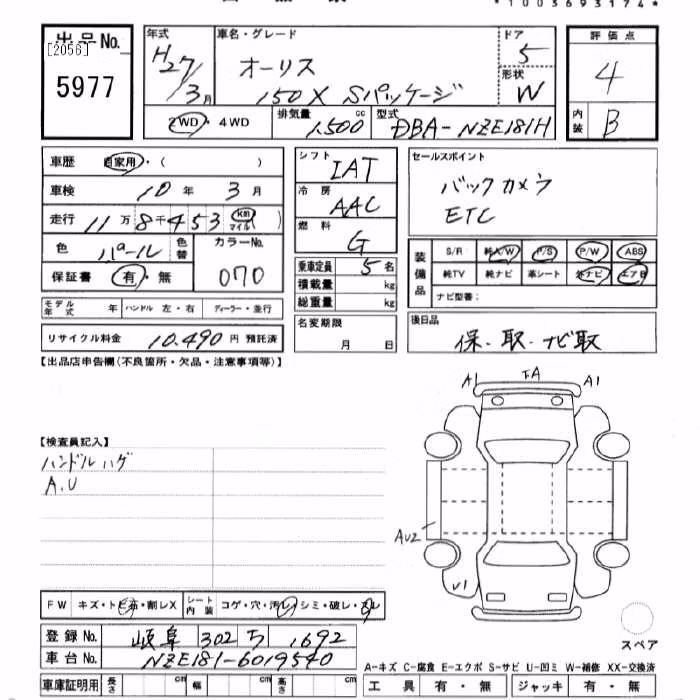 *1003693174*
出品No.
[2056]
5977
年式
H27/3月
車名・グレード
オーリス
150X Sパッケージ
ドア
5
形状
W
評価点
4
内装
B
2WD・4WD
排気量
1,500 cc
型式
DBA-NZE181H
車歴 自家用・( )
車検 10年3月
走行 11万8千453 km マイル ( )
色 パール 色替
カラーNo.
070
保証書 有・無
モデル年式 年 ハンドル 左・右 ディーラー・並行
リサイクル料金 10,490円 預託済
シフト
IAT
冷房
AAC
燃料
G
乗車定員 5名
積載量 kg
総重量 kg
名変期限
月 日
セールスポイント
バックカメラ
ETC
装備品
S/R 純A/W P/S P/W ABS
純TV 純ナビ 革シート 外ナビ エアB
ナビ型番:
後日品
保・取・ナビ取
【出品店申告欄(不良箇所・欠品・注意事項等)】
A1 A1
【検査員記入】
ハンドルハゲ
A.U
AU2
U1
FW キズ・トビ石・割レX
シート内装 コゲ・穴・汚レ・シミ・破レ・スレ
登録No. 岐阜 302 ち 1692
車台No. NZE181-6019540
車庫証明用 長さ cm 幅 cm 高さ cm
スペア
A-キズ C-腐食 E-エクボ S-サビ U-凹ミ W-補修 XX-交換済
工具 有・無 ジャッキ 有・無